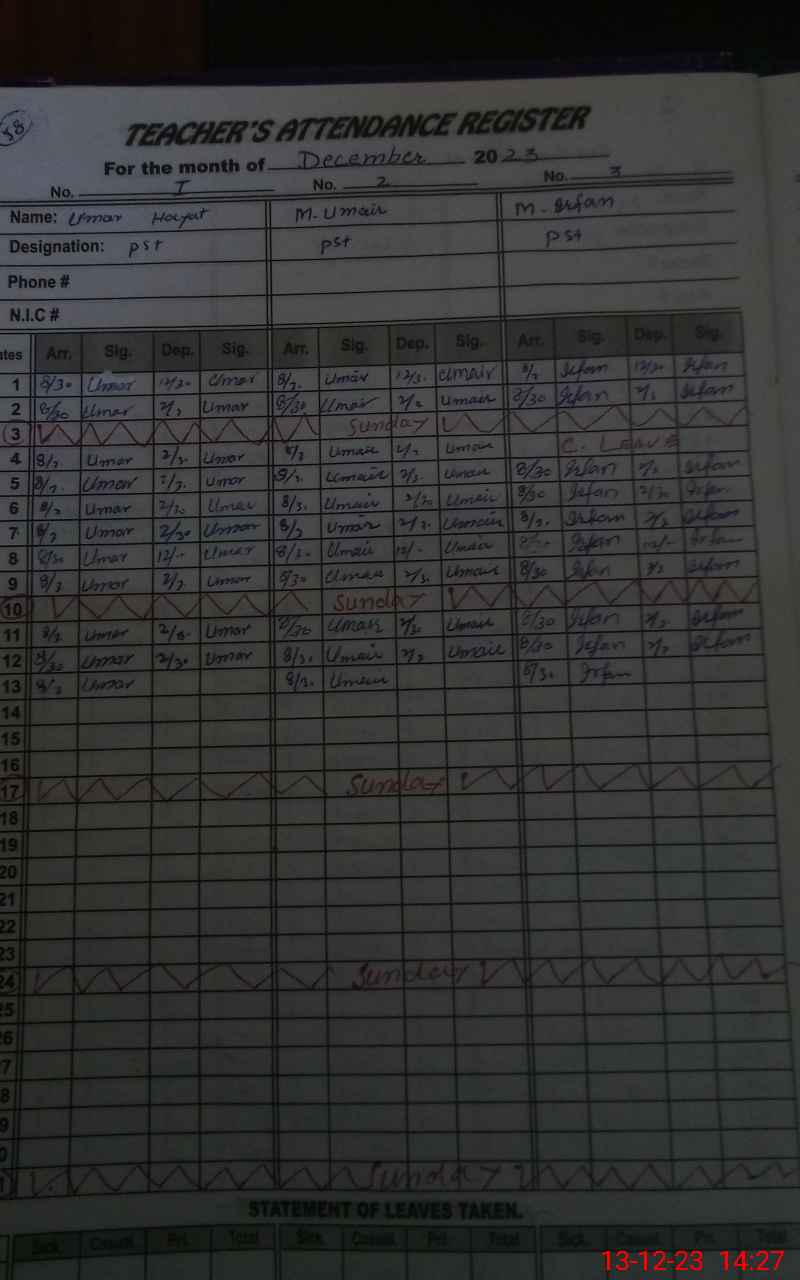 58
TEACHER'S ATTENDANCE REGISTER
For the month of December 2023
No. I No. 2 No. 3
Name: Umar Hayat M. Umair M. Irfan
Designation: PST PST PST
Phone #
N.I.C #
ates Arr. Sig. Dep. Sig. Arr. Sig. Dep. Sig. Arr. Sig. Dep. Sig.
1 8/30 Umar 12/30 Umar Umair 12/3. Umair Irfan 12/30 Irfan
2 8/30 Umar Umar 8/30 Umair Umair 8/30 Irfan Irfan
3 Sunday
4 Umar Umar Umair Umair C. LEAVE
5 Umar Umar Umair Umair 8/30 Irfan Irfan
6 Umar 2/30 Umar 8/3. Umair 2/30 Umair 8/30 Irfan 2/30 Irfan
7 Umar 2/30 Umar Umair Umair 8/3. Irfan Irfan
8 8/30 Umar 12/- Umar 8/3. Umair 12/- Umair Irfan 12/- Irfan
9 Umar Umar 8/30 Umair 2/3. Umair 8/30 Irfan Irfan
10 Sunday
11 Umar Umar 8/30 Umair Umair 8/30 Irfan Irfan
12 8/30 Umar 2/30 Umar 8/3. Umair Umair 8/30 Irfan Irfan
13 Umar 8/3. Umair 8/3. Irfan
14
15
16
17 Sunday
18
19
20
21
22
23
24 Sunday
25
26
7
8
9
0
1 Sunday
STATEMENT OF LEAVES TAKEN.
Sick. Casual. Pri. Total Sick. Casual. Pri. Total Sick. Casual. Pri. Total
13-12-23 14:27